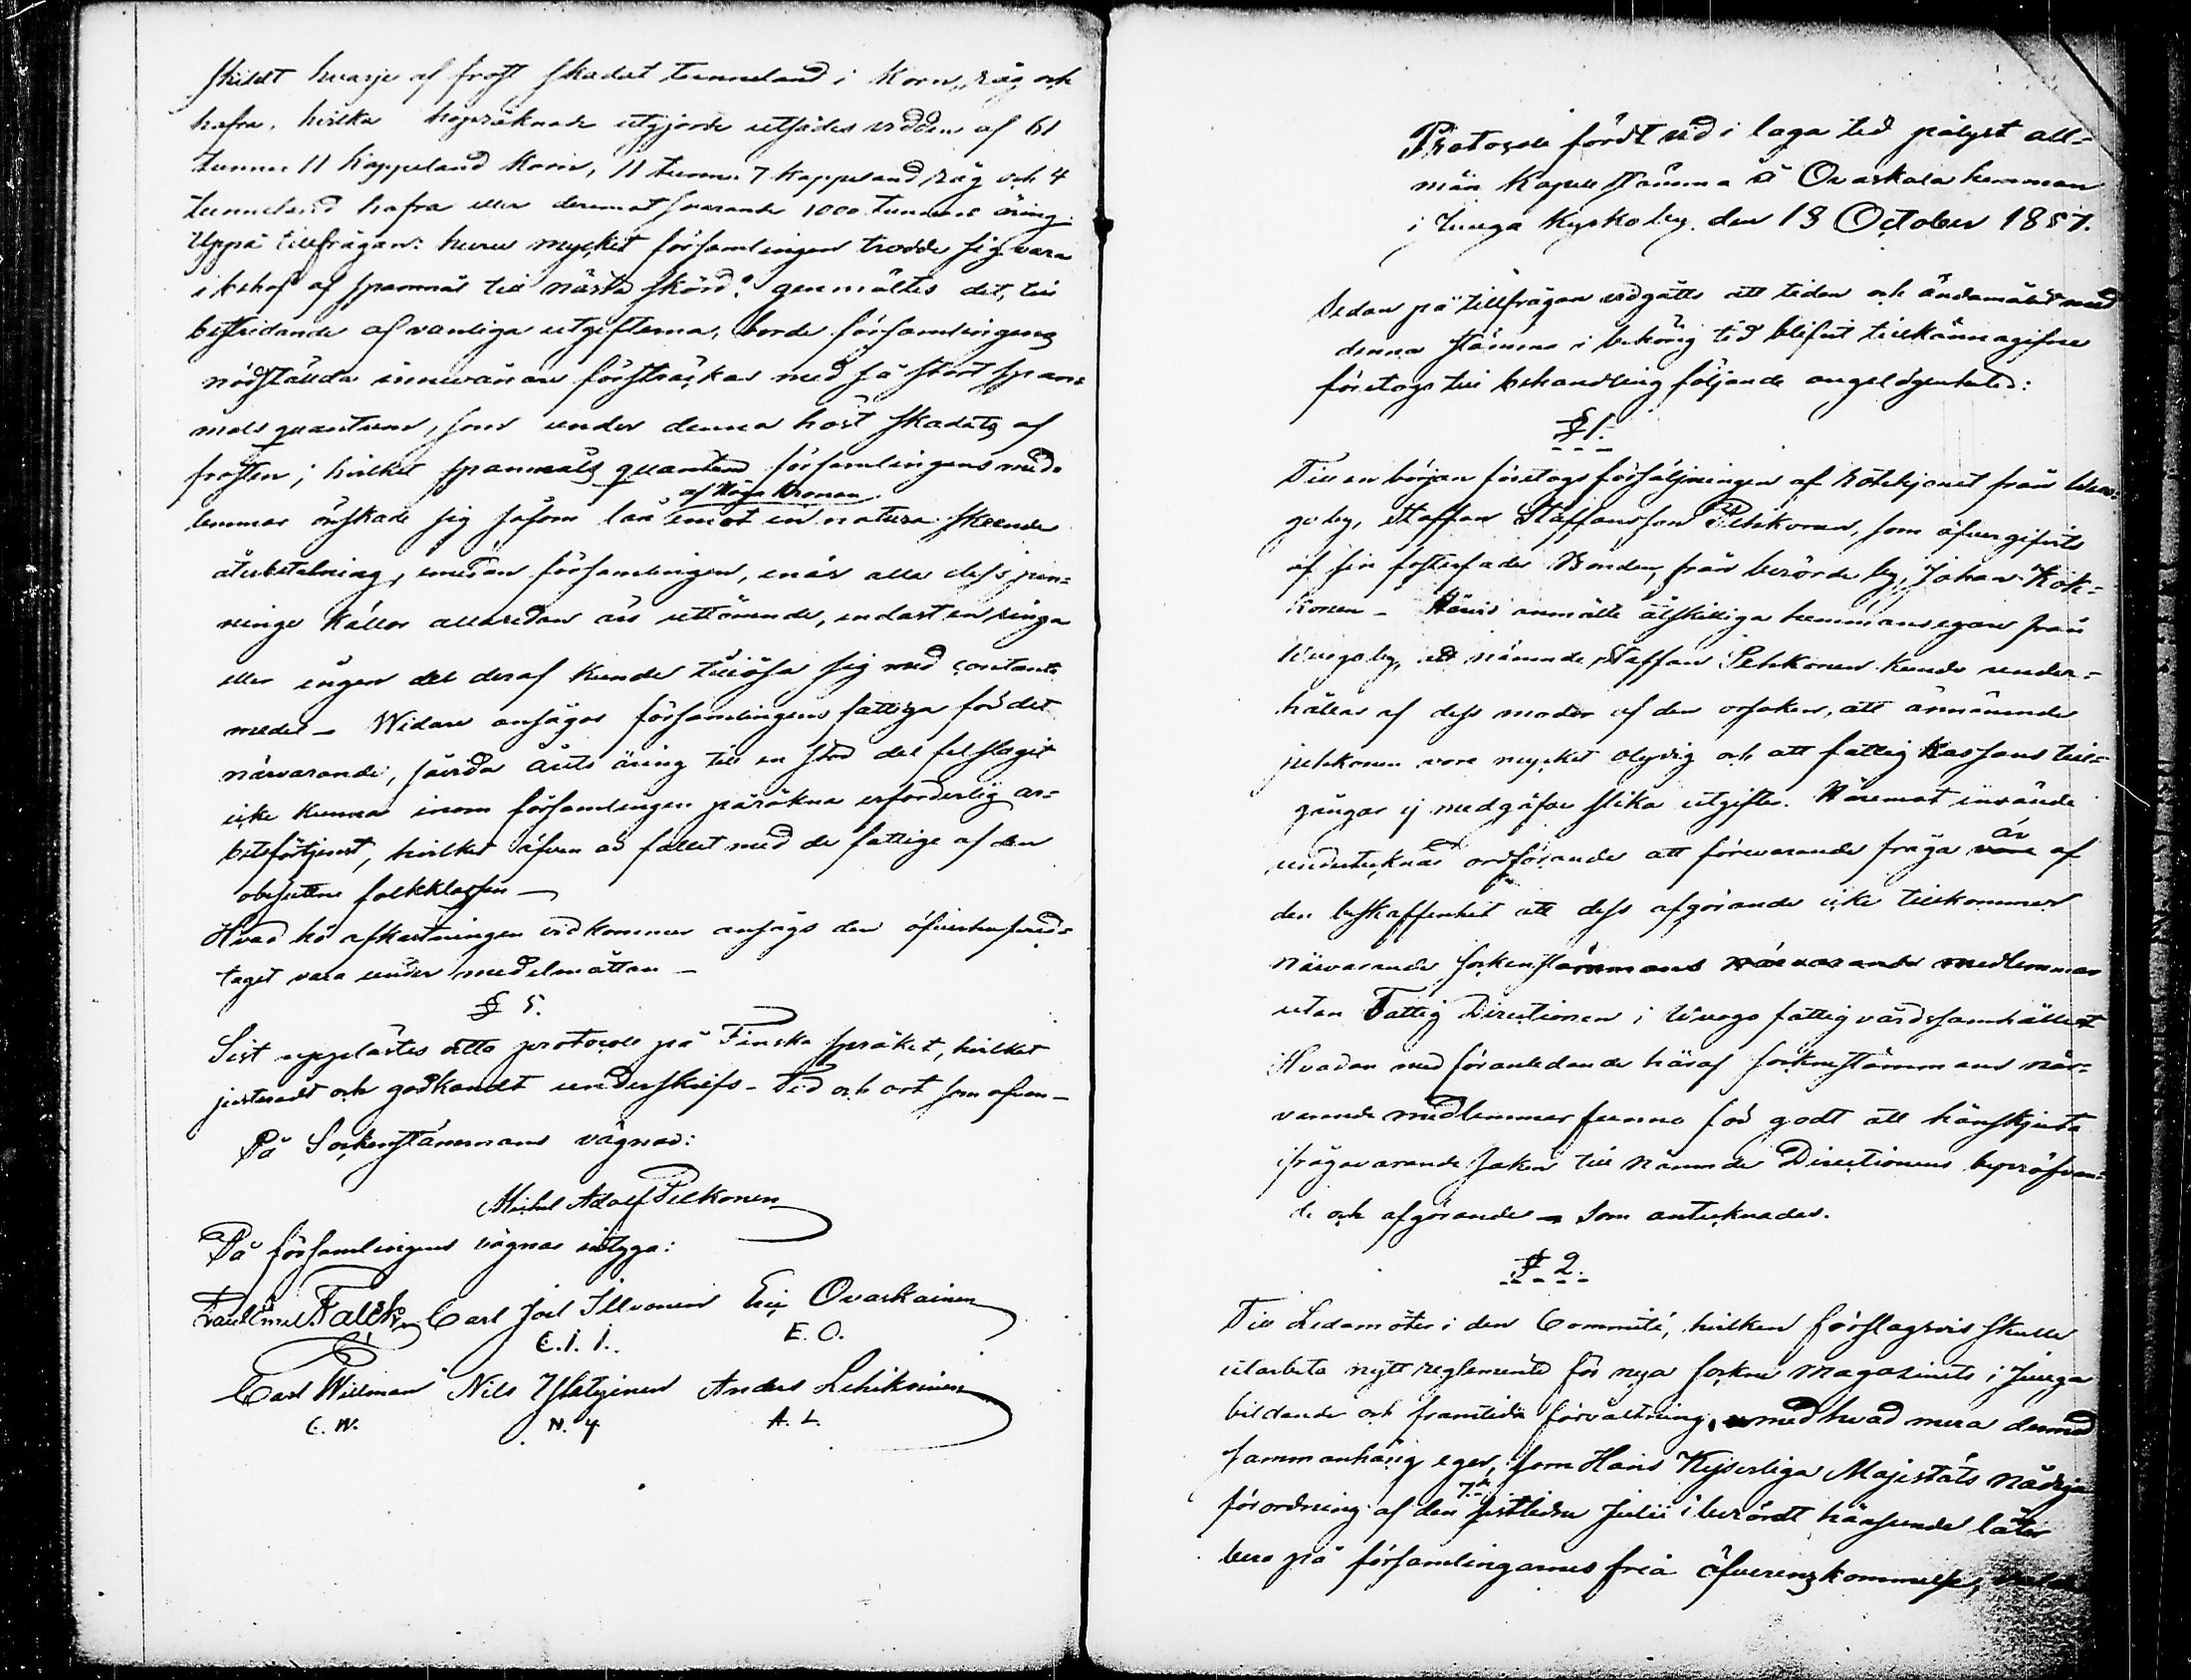 skildt hvarje af frost skadat tunneland i Korn, råg och
hafra, hvilka hopräknade utgjorde utsädes vidden af 61
tunnor 11 Kappeland Korn, 11 tunnor 7 Kappeland råg och 4
tunneland hafra eller deremot svarande 1000 tunnors äring.
Uppå tillfrågan: huru mycket församlingen trodde sig vara
i behof af spannmål till nästa skörd? genmältes det, till
bestridande af vanliga utgifterna, borde församlingens
nödställda innevånare försträckas med så stort span=
mals quantum, som under denna höst skadats af
frosten; hvilket spannmåls quantum församlingens med=
af Höga Kronan
lemmar önskade sig såsom lån emot in natura skeende
återbetalning, emedan församlingen, enär alla dess pen=
ninge källor allaredan äro uttömde, endast en ringa
eller ingen del deraf kunde tillösa sig med contanta
medel – Widare ansågos församlingens fattiga för det
närvarande, såvida årets äring till en stor del felslagit
icke kunna inom församlingen påräkna erforderlig ar=
betsförtjenst, hvilket äfven är fallet med de fattige af den
obesuttne folkklassen –
Hvad hö afkastningen vidkommer ansågs den öfverhufvud=
taget vara under medelmåttan –
§ 5.
Sist upplästes detta protocoll på Finska språket, hvilket
justeradt och godkändt underskrifs – Tid och ort som ofvan –
På Sockenstämmans vägnar:
Michel Adolf Pelkonen
På församlingens vägnar intyga:
Falck Carl Joel Illvonen Eric Ovaskainen
C. I. I. E. O.
Carl Willman Nils Ylletyinen Anders Lehikoinen
C. W. N. Y A. L.
Protocoll fördt vid i laga tid pålyst all=
män Kapell stämma å Ovaskala hemman
i Juuga Kyrkoby den 18 October 1857.
Sedan på tillfrågan vidgåtts att tiden och ändamålet med
denna stämma i behörig tid blifvit tillkännagifne
företogs till behandling följande angelägenheter:
§ 1.
Till en början företogs försäljningen af rotehjonet från
by, Staffan Staffansson Pehkonen, som öfvergifvits
af sin fosterfader Bonden, från berörde by, Johan Kok=
konen – Härvid anmälte åtskilliga hemmansegare från
by, att nämnde Staffan Pehkonen kunde under=
hållas af dess moder af den orsaken, att ännämnde
Pehkonen vore mycket olydig och att fattig Kassans till=
gångar ej medgåfve slika utgifter. Häremot invände
är
undertecknad ordförande att förevarande fråga vore af
den beskaffenhet att dess afgörande icke tillkommer
närvarande sockenstämmans närvarande medlemmar
utan Fattig Directionen i fattigvårdssamhället
Hvadan med föranledande häraf sockenstämmans när=
varande medlemmar funno för godt att hänskjuta
ifrågavarande saken till nämnde Directionens bepröfvan=
de och afgörande – Som antecknades.
§ 2.
Till Ledamöter i den Committé, hvilken förslagsvis skulle
utarbeta nytt reglemente för nya socken magasinets i Juuga
bildande och framtida förvaltning, med hvad mera dermed
sammanhäng eger, som Hans Kejserliga Majestäts nådiga
7de
förordning af den sistledne Julii i berördt hänseende låter
bero på församlingarnes fria öfverenskommelse,